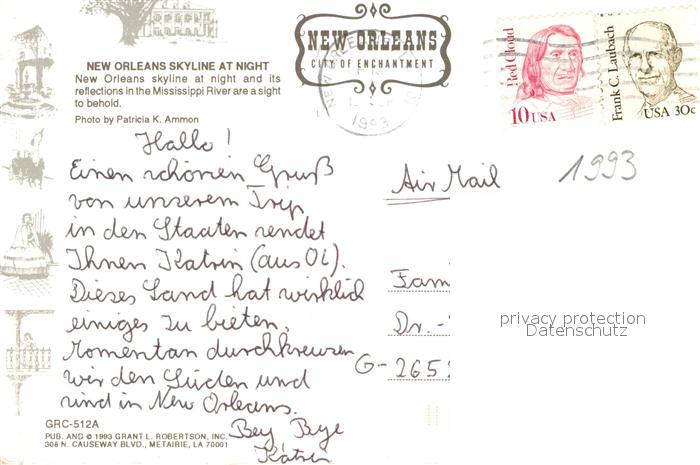 NEW ORLEANS
CITY OF ENCHANTMENT
NEW ORLEANS SKYLINE AT NIGHT
New Orleans skyline at night and its
reflections in the Mississippi River are a sight
to behold.
Photo by Patricia K. Ammon
Red Cloud
10 USA
Frank C. Laubach
USA 30c
NEW ORLEANS
1993
Hallo!
Einen schönen Gruß
von unserem Trip
in den Staaten sendet
Ihnen Katrin (aus Ol).
Dieses Land hat wirklich
einiges zu bieten.
Momentan durchkreuzen
wir den Süden und
sind in New Orleans.
Bey Bye
Katrin
Air Mail
1993
Fam
Dr.-
G-265
privacy protection
Datenschutz
GRC-512A
PUB. AND © 1993 GRANT L. ROBERTSON, INC.
308 N. CAUSEWAY BLVD., METAIRIE, LA 70001